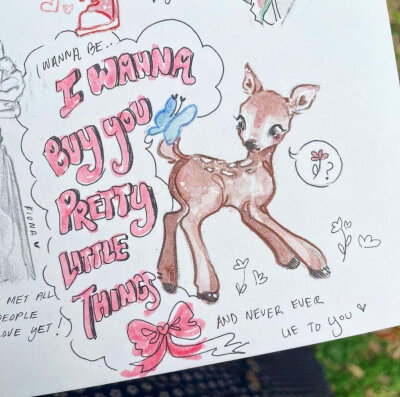 I WANNA BE..
I WANNA
BUY YOU
PRETTY
LITTLE
THINGS
?
FIONA
MET ALL
PEOPLE
OVE YET!
AND NEVER EVER
LIE TO YOU